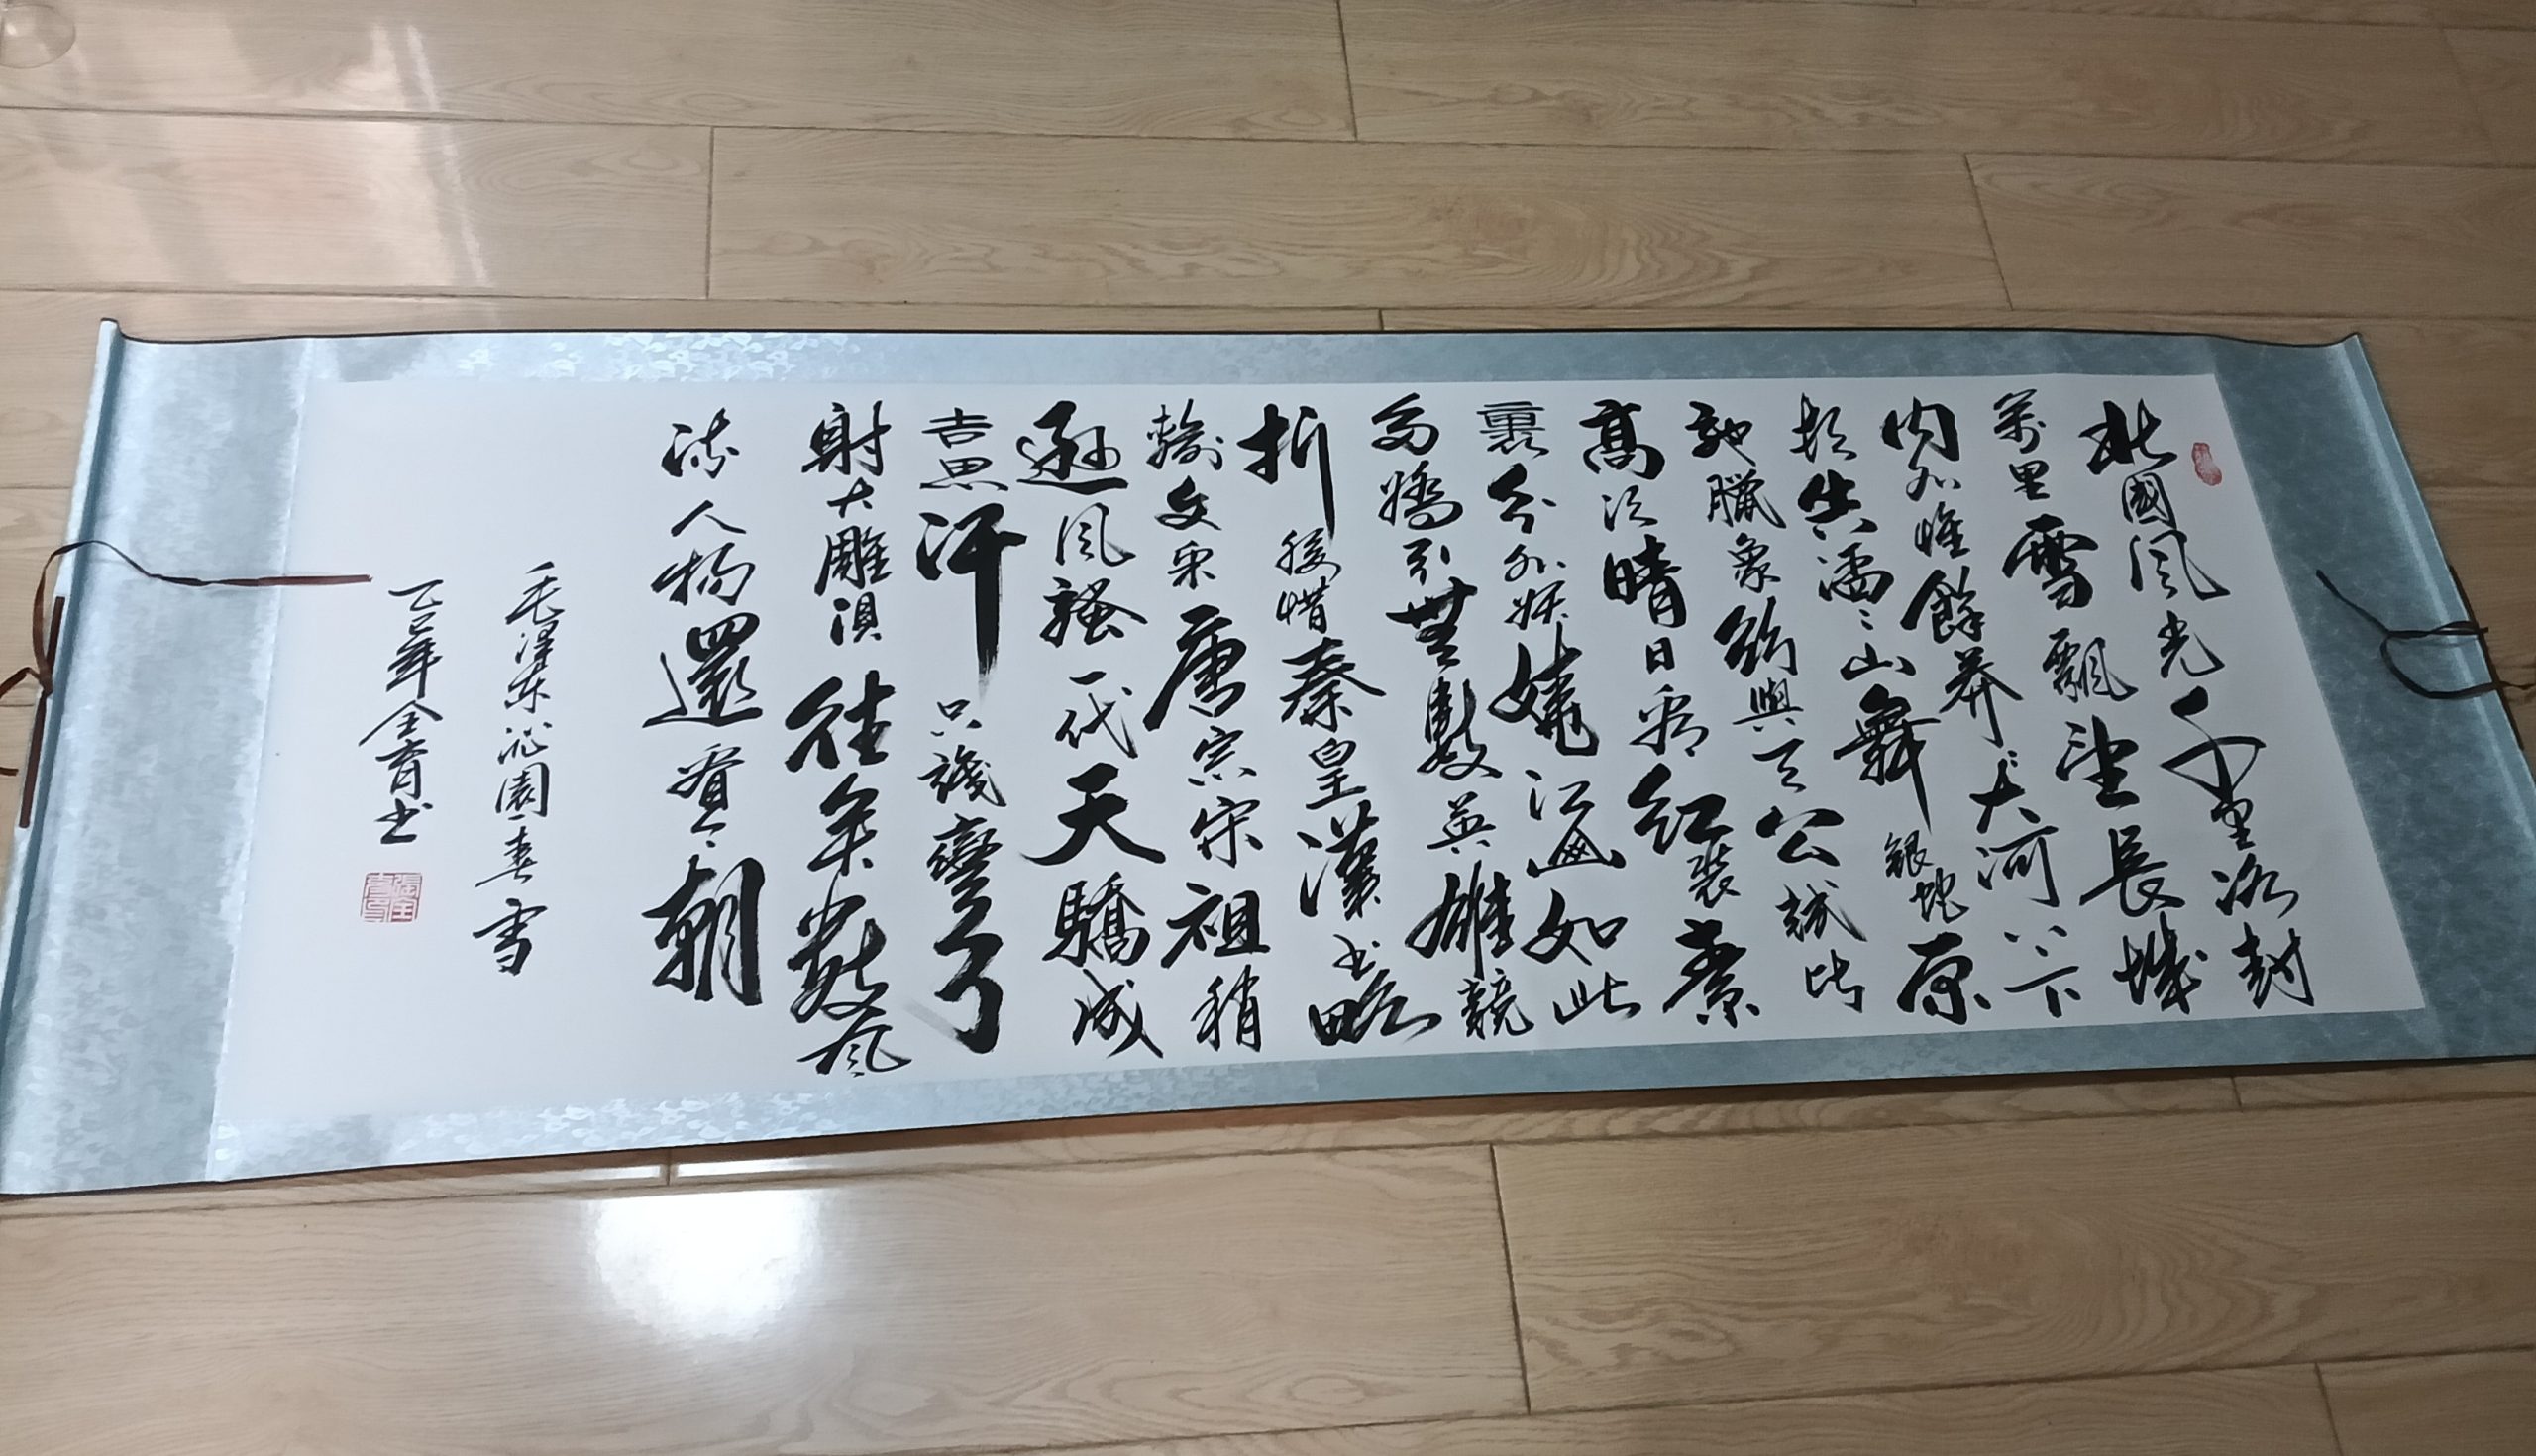 北國風光千里冰封
萬里雪飄望長城
内外惟餘莽〻大河上下
頓失滔〻山舞銀蛇原
馳臘象欲與天公試比
高須晴日看紅裝素
裹分外妖嬈江山如此
多嬌引無數英雄競
折腰惜秦皇漢武略
輸文采唐宗宋祖稍
遜風騷一代天驕成
吉思汗只識彎弓
射大雕俱往矣數風
流人物還看今朝
毛澤東沁園春雪
乙巳年全育书